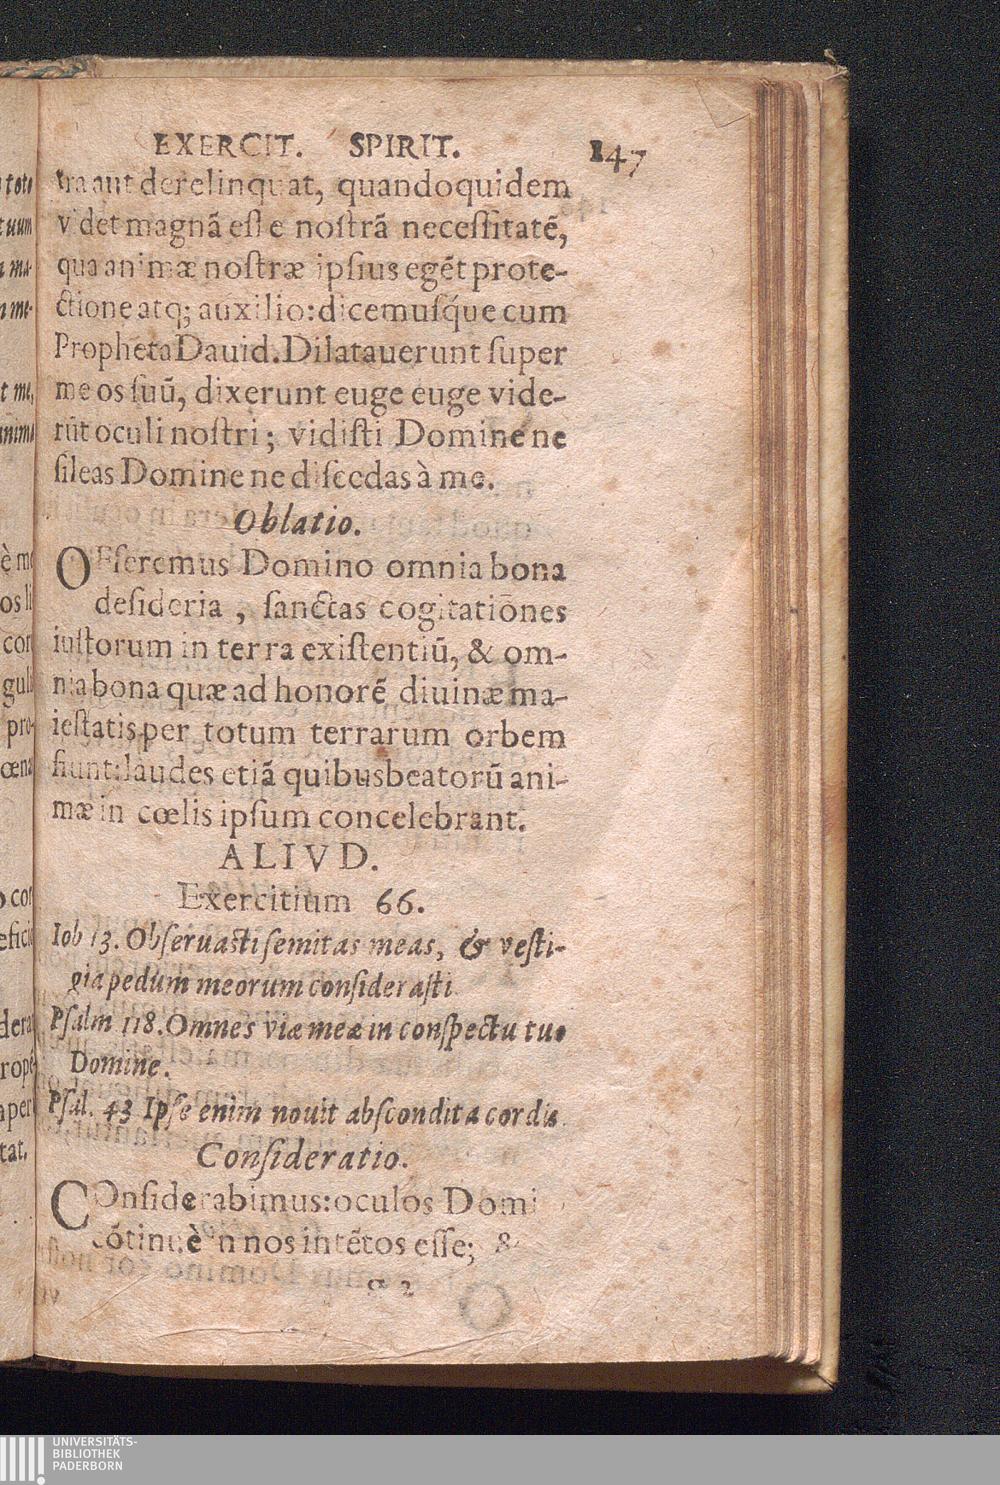 EXERCIT. SPIRIT. 147
tra aut derelinquat, quandoquidem
videt magnã esse nostrã necessitatẽ,
qua animæ nostræ ipsius egẽt prote-
ctione atq; auxilio: dicemusq́ue cum
Propheta Dauid. Dilatauerunt super
me os suũ, dixerunt euge euge vide-
rũt oculi nostri; vidisti Domine ne
sileas Domine ne discedas à me.
Oblatio.
OFferemus Domino omnia bona
desideria, sanctas cogitatiõnes
iustorum in terra existentiũ, & om-
nia bona quæ ad honorẽ diuinæ ma-
iestatis per totum terrarum orbem
fiunt: laudes etiã quibus beatorũ ani-
mæ in cœlis ipsum concelebrant.
ALIVD.
Exercitium 66.
Iob 13. Obseruasti semitas meas, & vesti-
gia pedum meorum considerasti
Psalm 118. Omnes viæ meæ in conspectu tuo
Domine.
Psal. 43 Ipse enim nouit abscondita cordis
Consideratio.
COnsiderabimus: oculos Domi
cõtinuè in nos intẽtos esse; &
UNIVERSITÄTS-
BIBLIOTHEK
PADERBORN